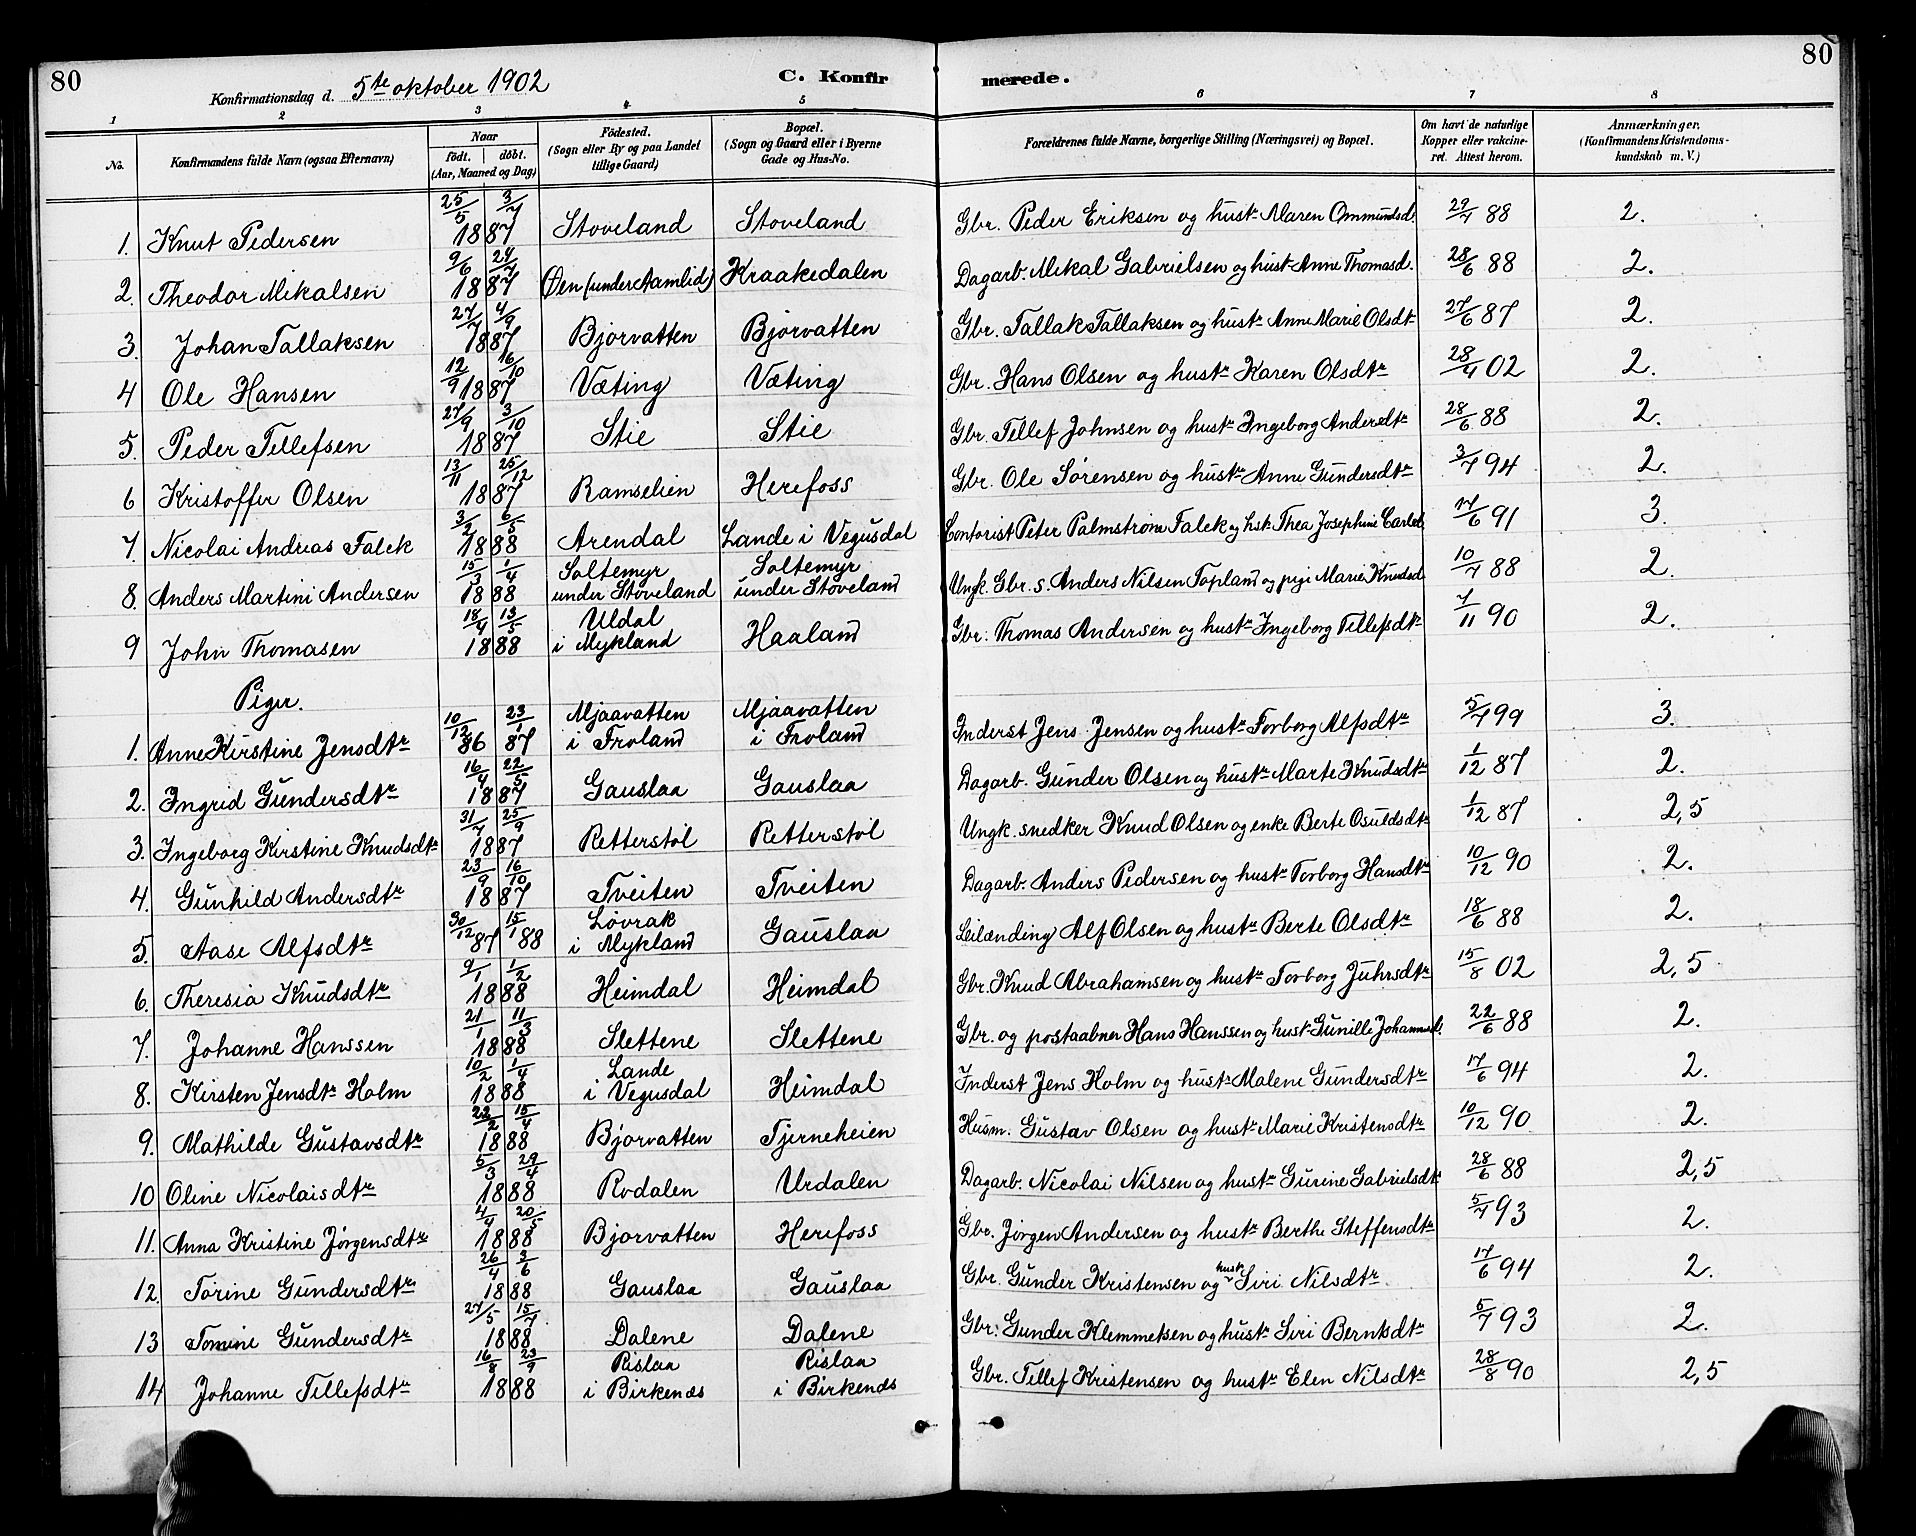 80 80
Konfirmationsdag d. 5te oktober 1902 C. Konfir merede.
1 2 3 4 5 6 7 8
No. Konfirmandens fulde Navn (ogsaa Efternavn) Naar født. døbt. (Aar, Maaned og Dag) Fødested. (Sogn eller By og paa Landet tillige Gaard) Bopæl. (Sogn og Gaard eller i Byerne Gade og Hus-No. Forældrenes fulde Navne, borgerlige Stilling (Næringsvei) og Bopæl. Om havt de naturlige Kopper eller vakcineret. Attest herom. Anmærkninger. (Konfirmandens Kristendomskundskab m. V.)
1. Knut Pedersen 25/5 3/7 1887 Stoveland Stoveland Gbr. Peder Eriksen og hustr Maren Ommundsd. 29/7 88 2.
2. Theodor Mikalsen 9/6 24/7 1887 Øen (under Aamlid) Kraakedalen Dagarb. Mikal Gabrielsen og hust Anne Thomasd. 28/6 88 2.
3. Johan Tallaksen 27/7 4/9 1887 Bjorvatten Bjorvatten Gbr. Tallak Tallaksen og hustr Anne Marie Olsdt 27/6 87 2.
4 Ole Hansen 12/9 16/10 1887 Væting Væting Gbr. Hans Olsen og hustr Karen Olsdtr 28/4 02 2.
5. Peder Tellefsen 27/9 3/10 1887 Stie Stie Gbr. Tellef Johnsen og hustr Ingeborg Andersdtr 28/6 88 2.
6 Kristoffer Olsen 13/11 25/12 1887 Ramselien Herefoss Gbr. Ole Sørensen og hustr Anne Gundersdtr 3/7 94 2.
7. Nicolai Andreas Falck 3/2 6/5 1888 Arendal Lande i Vegusdal Contorist Peter Palmstrøm Falck og hstr Thea Josephine Carlsd. 17/6 91 3.
8. Anders Martini Andersen 15/3 1/4 1888 Soltemyr under Stoveland Soltemyr under Stoveland Ungk. Gbr. s. Anders Nilsen Topland og pige Marie Knudsd. 10/7 88 2.
9 John Thomasen 18/4 13/5 1888 Uldal i Mykland Haaland Gbr. Thomas Andersen og hustr Ingeborg Tellefsdtr 7/11 90 2.
Piger.
1. Anne Kirstine Jensdtr 10/12 86 23/1 87 Mjaavatten i Froland Mjaavatten i Froland Inderst Jens Jensen og hustr Torborg Alfsdtr 5/7 99 3.
2. Ingrid Gundersdtr 16/4 22/5 1887 Gauslaa Gauslaa Dagarb. Gunder Olsen og hustr Marte Knudsdtr 1/12 87 2.
3. Ingeborg Kirstine Knudsdtr 31/7 25/9 1887 Retterstøl Retterstøl Ungk. snedker Knud Olsen og enke Berte Osuldsdtr 1/12 87 2,5
4. Gunhild Andersdtr 23/9 16/10 1887 Tveiten Tveiten Dagarb. Anders Pedersen og hustr Torborg Hansdtr 10/12 90 2.
5. Aase Alfsdtr 30/12 87 15/1 88 Løvrak i Mykland Gauslaa Leilænding Alf Olsen og hustr Berte Olsdtr 18/6 88 2.
6. Theresia Knudsdtr 9/1 1/2 1888 Heimdal Heimdal Gbr. Knud Abrahamsen og hustr Torborg Juhrsdtr 15/8 02 2,5
7. Johanne Hanssen 21/1 11/3 1888 Slettene Slettene Gbr. og postaabner Hans Hanssen og hust Gunille Johannsd. 22/6 88 2.
8. Kirsten Jensdtr Holm 10/2 1/4 1888 Lande i Vegusdal Heimdal Inderst Jens Holm og hustr Malene Gundersdtr 17/6 94 2.
9. Mathilde Gustavsdtr 22/2 15/4 1888 Bjorvatten Tjerneheien Husm. Gustav Olsen og hustr Marie Kristensdtr 10/12 90 2.
10 Oline Nicolaisdtr 5/3 29/4 1888 Rodalen Urdalen Dagarb. Nicolai Nilsen og hustr Gurine Gabrielsdtr 28/6 88 2,5
11. Anna Kristine Jørgensdtr 4/4 20/5 1888 Bjorvatten Herefoss Gbr. Jørgen Andersen og hustr Berthe Steffensdtr 5/7 93 2.
12. Torine Gundersdtr 26/4 3/6 1888 Gauslaa Gauslaa Gbr. Gunder Kristensen og hustr Siri Nilsdtr. 17/6 94 2.
13 Tomine Gundersdtr 27/5 15/7 1888 Dalene Dalene Gbr. Gunder Klemmetsen og hustr Siri Berntsdtr 5/7 93 2.
14 Johanne Tellefsdtr 16/8 23/9 1888 Rislaa i Birkenes Rislaa i Birkenes Gbr. Tellef Kristensen og hustr Elen Nilsdtr 28/8 90 2,5